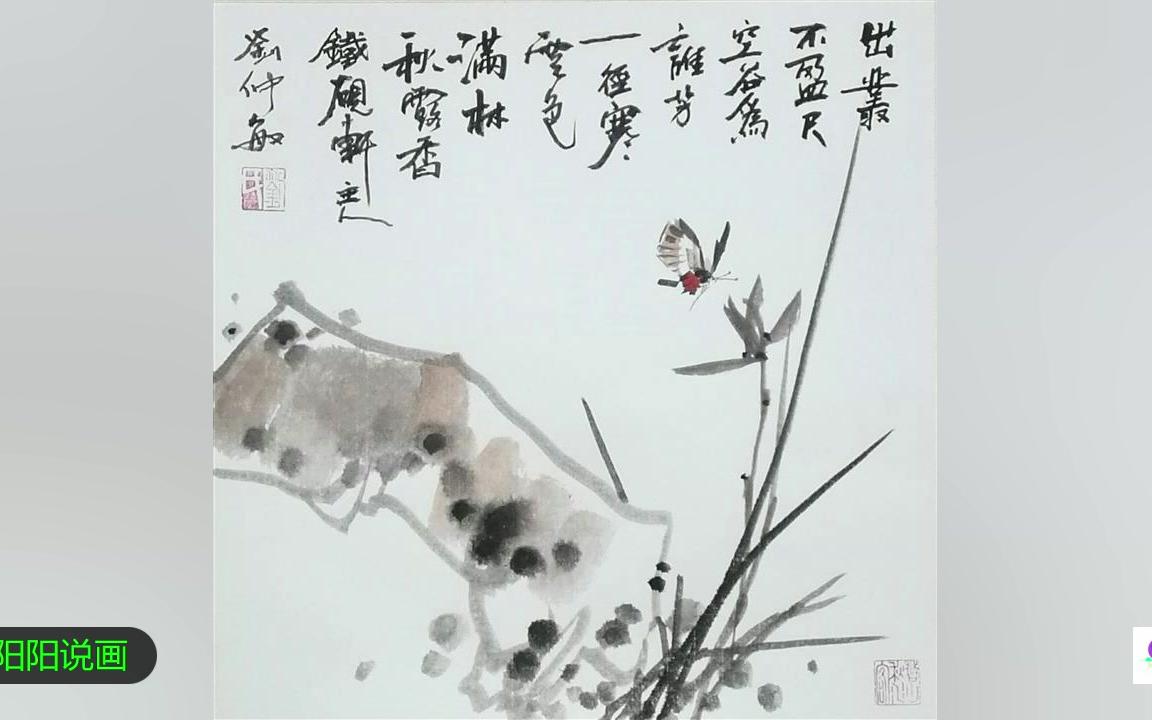 出叢
不盈尺
空谷爲
誰芳
一徑寒
雲色
滿林
秋露香
鐵硯軒主人
劉仲敏
阳阳说画